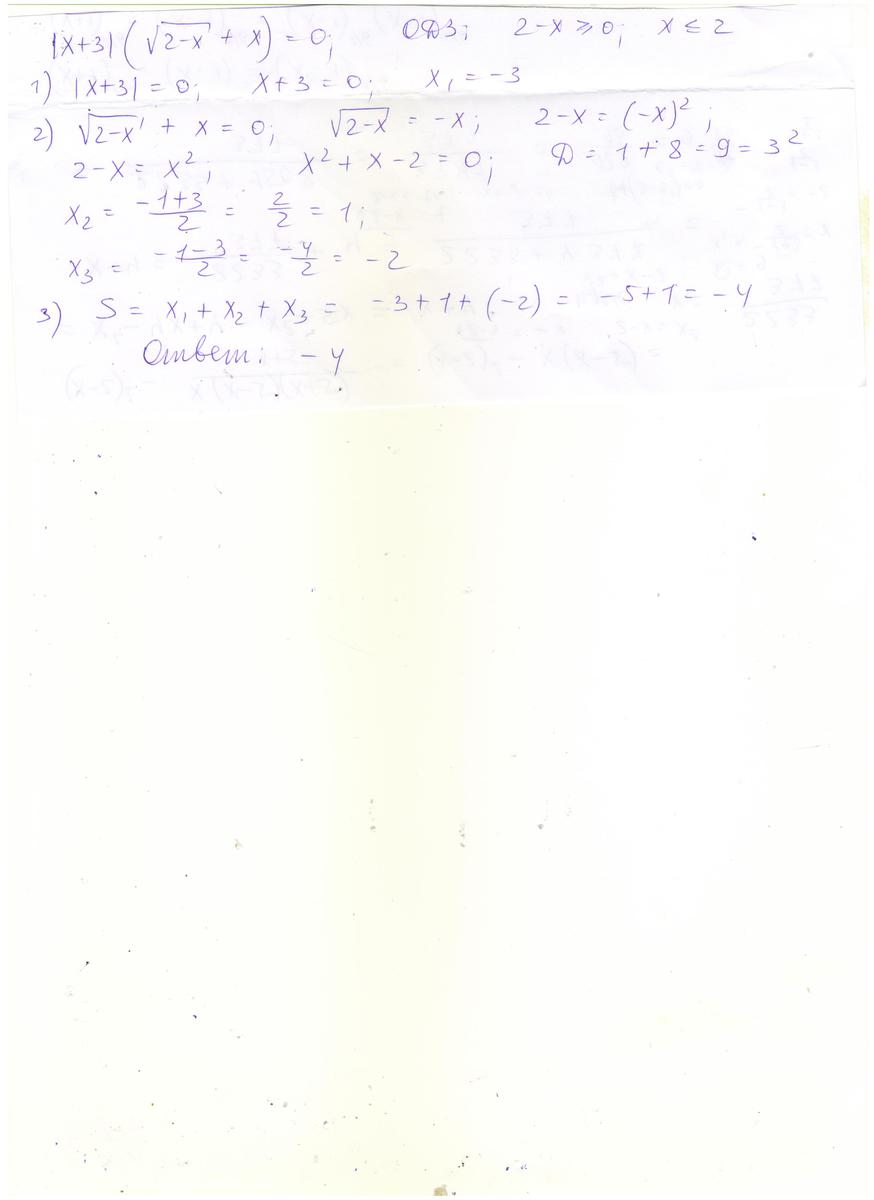 |x+3| (√2-x + x) = 0; ОДЗ; 2-x ≥ 0; x ≤ 2
1) |x+3| = 0; x+3 = 0; x₁ = -3
2) √2-x + x = 0; √2-x = -x; 2-x = (-x)²;
2-x = x²; x² + x - 2 = 0; D = 1 + 8 = 9 = 3²
x₂ = -1+3/2 = 2/2 = 1;
x₃ = -1-3/2 = -4/2 = -2
3) S = x₁ + x₂ + x₃ = -3 + 1 + (-2) = -5 + 1 = -4
Ответ: -4